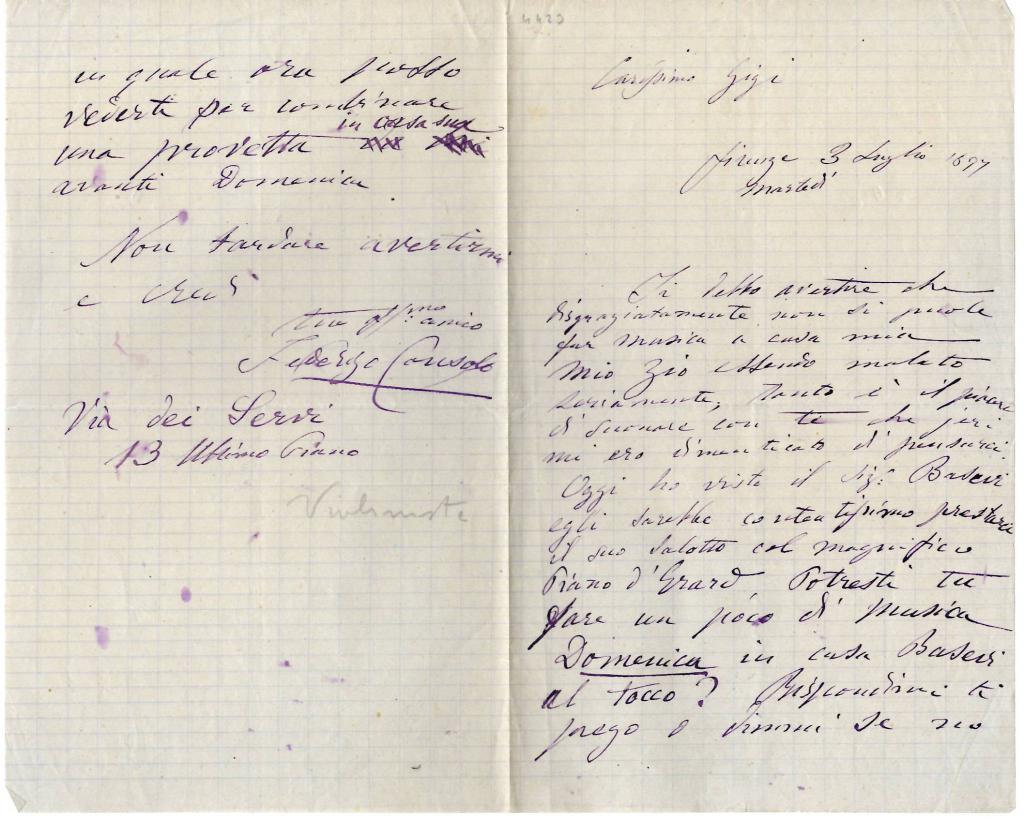 4423
Carissimo Gigi
Firenze 3 Luglio 1877
Martedì
Ti debbo avertire che
disgraziatamente non si puole
far musica a casa mia
Mio Zio essendo malato
seriamente, tanto è il piacere
di suonare con te che jeri
mi ero dimenticato di pensarci.
Oggi ho visto il Sig: Basevi
egli sarebbe contentissimo prestare
il suo salotto col magnifico
Piano d'Erard Potresti tu
fare un póco di musica
Domenica in casa Basevi
al tocco? Rispondimi ti
prego e dimmi se no
in quale ora posso
vederti per combinare
una provetta in casa sua
avanti Domenica
Non tardare avertirmi
e credi
tuo aff:mo amico
Federigo Consolo
Via dei Servi
13 Ultimo Piano
Violinista